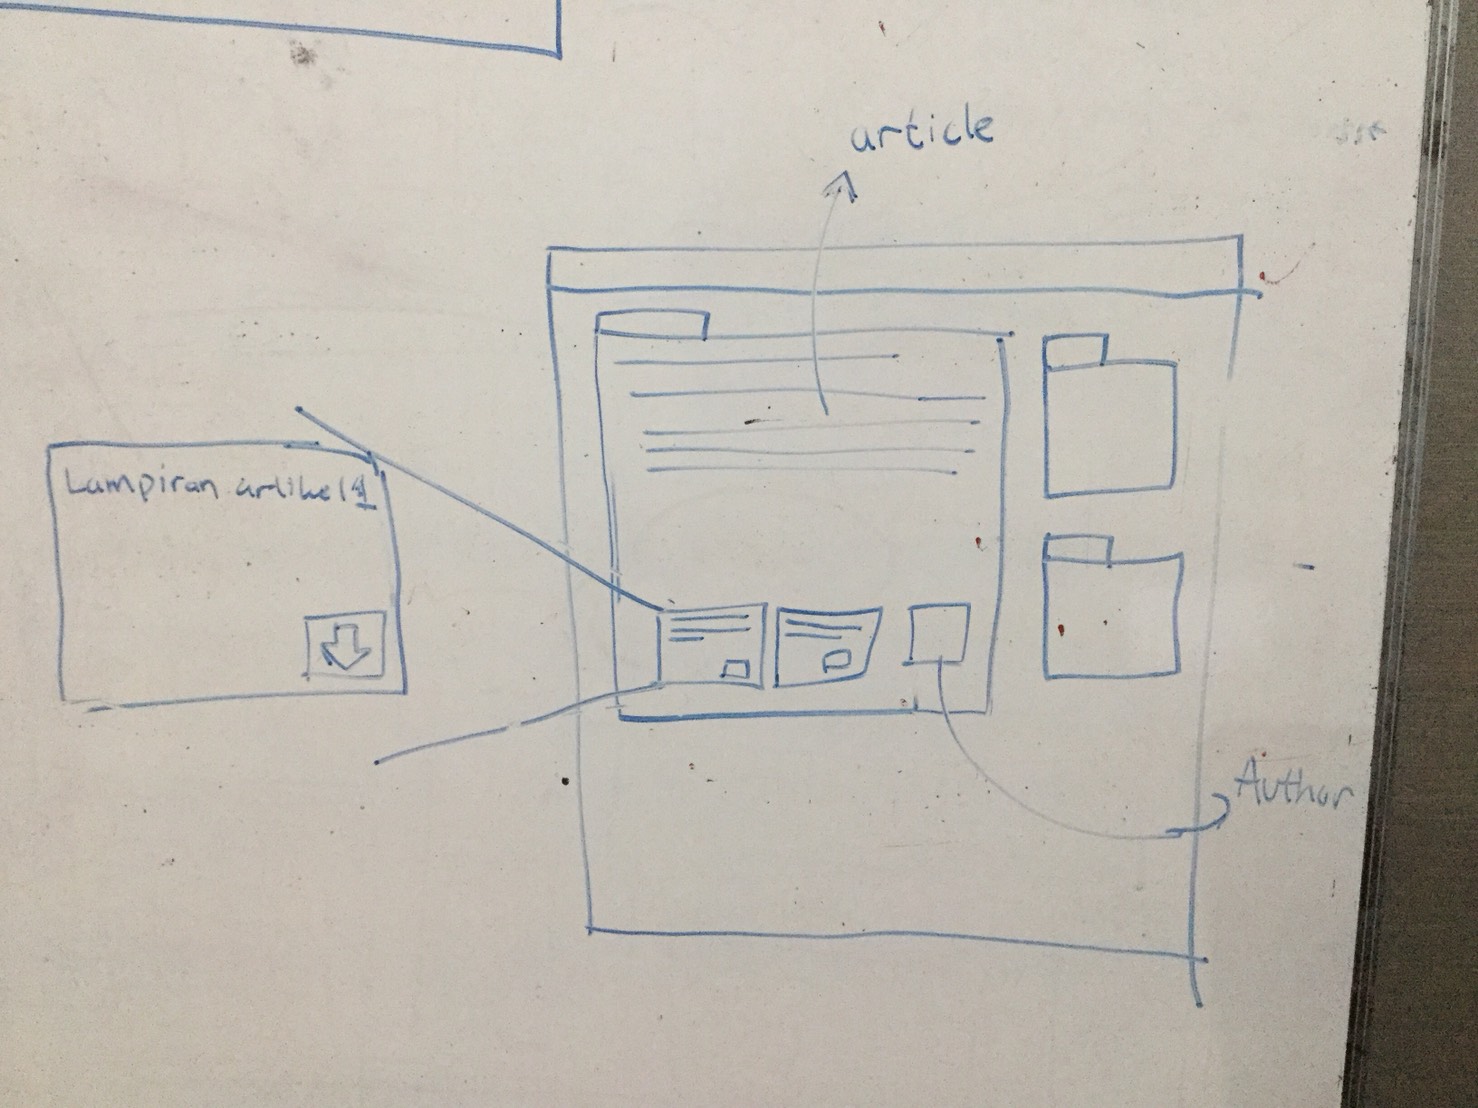 article
Lampiran artikel 1
Author